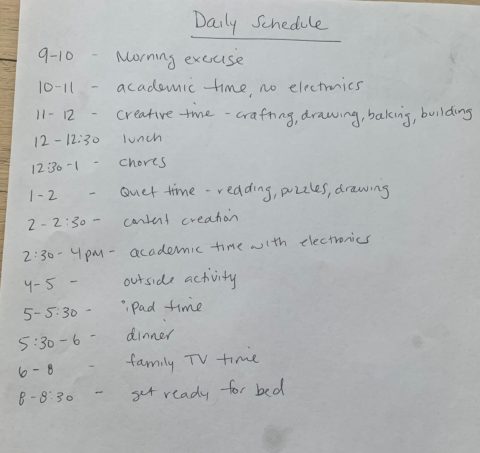 Daily Schedule
9-10 - Morning exercise
10-11 - academic time, no electronics
11-12 - creative time - crafting, drawing, baking, building
12-12:30 lunch
12:30-1 - chores
1-2 - Quiet time - reading, puzzles, drawing
2-2:30 - content creation
2:30-4pm - academic time with electronics
4-5 - outside activity
5-5:30 - iPad time
5:30-6 - dinner
6-8 - family TV time
8-8:30 - get ready for bed